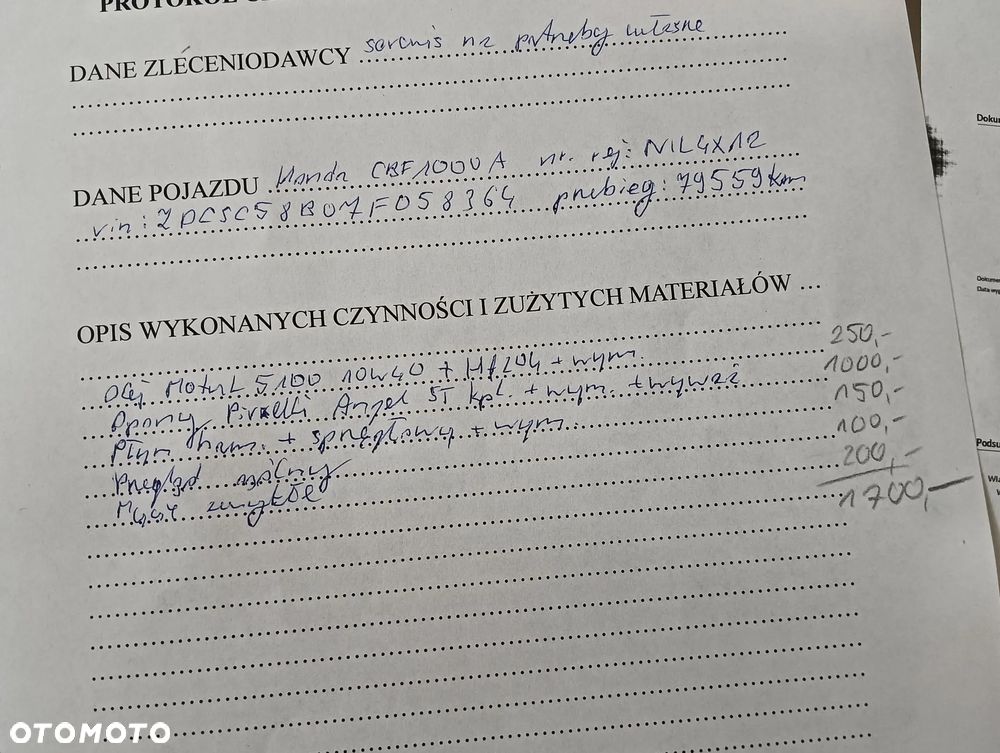 PROTOKÓŁ
DANE ZLECENIODAWCY serwis na potrzeby własne
DANE POJAZDU Honda CBF1000A nr. rej: NIL4X12
vin: ZDCSC58B07F058364 przebieg: 79559km
OPIS WYKONANYCH CZYNNOŚCI I ZUŻYTYCH MATERIAŁÓW ...
Olej Motul 5100 10w40 + Hf204 + wym. 250,-
Opony Pirelli Angel ST kpl. + wym. + wyważ 1000,-
Płyn ham. + sprzęgłowy + wym. 150,-
Przegląd 100,-
200,-
1700,-
Dokum
Dokumen
Data wy
Podsu
Wła
OTOMOTO